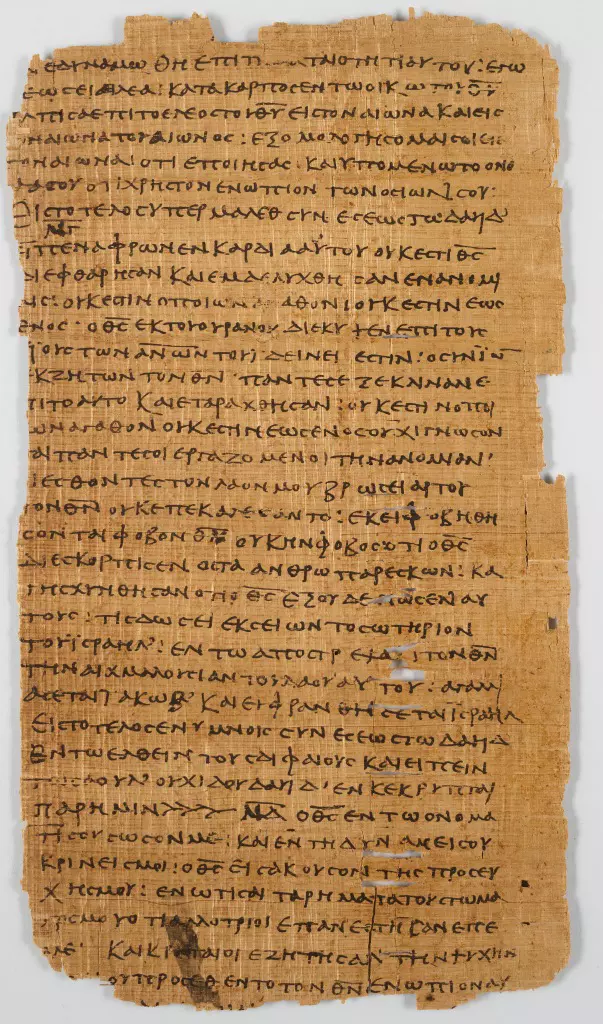 ΕΔΥΝΑΜΩΘΗ ΕΠΙ ΤΑΙΟΤΗΤΙ ΑΥΤΟΥ : ΕΓΩ
ΕΩCΕΙ ΕΛΕΑ : ΚΑΤΑΚΑΡΠΟC ΕΝ ΤΩ ΟΙΚΩ ΤΟΥ Θ̅Υ̅
ΛΠΙCΑ ΕΠΙ ΤΟ ΕΛΕΟC ΤΟΥ Θ̅Υ̅ ΕΙC ΤΟΝ ΑΙΩΝΑ ΚΑΙ ΕΙC
ΟΝ ΑΙΩΝΑ ΤΟΥ ΑΙΩΝΟC : ΕΞΟΜΟΛΟΓΗCΟΜΑΙ CΟΙ ΕΙC
ΟΝ ΑΙΩΝΑ ΟΤΙ ΕΠΟΙΗCΑC : ΚΑΙ ΥΠΟΜΕΝΩ ΤΟ ΟΝΟ
ΜΑ CΟΥ ΟΤΙ ΧΡΗCΤΟΝ ΕΝΩΠΙΟΝ ΤΩΝ ΟCΙΩΝ CΟΥ :
ΕΙC ΤΟ ΤΕΛΟC ΥΠΕΡ ΜΑΛΕΘ CΥΝΕCΕΩC ΤΩ ΔΑΥΙΔ
Ν̅Γ̅
ΕΙΠΕΝ ΑΦΡΩΝ ΕΝ ΚΑΡΔΙΑ ΑΥΤΟΥ ΟΥΚ ΕCΤΙ Θ̅C̅
ΔΙΕΦΘΑΡΗCΑΝ ΚΑΙ ΕΜΔΕΛΥΧΘΗCΑΝ ΕΝ ΑΝΟΜΙ
ΑΙC : ΟΥΚ ΕCΤΙΝ Ο ΠΟΙΩΝ ΑΓΑΘΟΝ ΟΥΚ ΕCΤΙΝ ΕΩC
ΕΝΟC : Ο Θ̅C̅ ΕΚ ΤΟΥ ΟΥΡΑΝΟΥ ΔΙΕΚΥΨΕΝ ΕΠΙ ΤΟΥC
ΥΙΟΥC ΤΩΝ Α̅Ν̅Ω̅Ν̅ ΤΟΥ ΙΔΕΙΝ ΕΙ ΕCΤΙΝ : Ο CΥΝΙΩ̅
ΕΚΖΗΤΩΝ ΤΟΝ Θ̅Ν̅ ΠΑΝΤΕC ΕΞΕΚΛΙΝΑΝ Ε
ΠΙ ΤΟ ΑΥΤΟ ΚΑΙ ΕΤΑΡΑΧΘΗCΑΝ : ΟΥΚ ΕCΤΙΝ Ο ΠΟΙ
ΩΝ ΑΓΑΘΟΝ ΟΥΚ ΕCΤΙΝ ΕΩC ΕΝΟC ΟΥΧΙ ΓΝΩCΟΝ
ΤΑΙ ΠΑΝΤΕC ΟΙ ΕΡΓΑΖΟΜΕΝΟΙ ΤΗΝ ΑΝΟΜΙΑΝ
ΙΕCΘΟΝΤΕC ΤΟΝ ΛΑΟΝ ΜΟΥ ΒΡΩCΕΙ ΑΡΤΟΥ
ΤΟΝ Θ̅Ν̅ ΟΥΚ ΕΠΕΚΑΛΕCΑΝΤΟ : ΕΚΕΙ ΦΟΒΗΘΗ
CΟΝΤΑΙ ΦΟΒΟΝ ΟΥ ΟΥΚ ΗΝ ΦΟΒΟC ΟΤΙ Ο Θ̅C̅
ΔΙΕCΚΟΡΠΙCΕΝ ΟCΤΑ ΑΝΘΡΩΠΑΡΕCΚΩΝ : ΚΑ
ΤΗCΧΥΝΘΗCΑΝ ΟΤΙ Ο Θ̅C̅ ΕΞΟΥΔΕΝΩCΕΝ ΑΥ
ΤΟΥC : ΤΙC ΔΩCΕΙ ΕΚ CΕΙΩΝ ΤΟ CΩΤΗΡΙΟΝ
ΤΟΥ ΙCΡΑΗΛ : ΕΝ ΤΩ ΑΠΟCΤΡΕΨΑΙ ΤΟΝ Θ̅Ν̅
ΤΗΝ ΑΙΧΜΑΛΟΥCΙΑΝ ΤΟΥ ΛΑΟΥ ΑΥΤΟΥ : ΑΓΑΛΛΙ
ΑCΕΤΑΙ ΙΑΚΩΒ ΚΑΙ ΕΥΦΡΑΝΘΗCΕΤΑΙ ΙCΡΑΗΛ
ΕΙC ΤΟ ΤΕΛΟC ΕΝ ΥΜΝΟΙC CΥΝΕCΕΩC ΤΩ ΔΑΥΙΔ
ΕΝ ΤΩ ΕΛΘΕΙΝ ΤΟΥC ΔΙΦΑΙΟΥC ΚΑΙ ΕΙΠΕΙΝ
ΤΩ CΑΟΥΛ ΟΥΧ ΙΔΟΥ ΔΑΥΙΔ ΕΝΚΕΚΡΥΠΤΑΙ
ΠΑΡ ΗΜΙΝ >>>— Ν̅Δ̅ Ο Θ̅C̅ ΕΝ ΤΩ ΟΝΟΜΑ
ΤΙ CΟΥ CΩCΟΝ ΜΕ : ΚΑΙ ΕΝ ΤΗ ΔΥΝΑΜΕΙ CΟΥ
ΚΡΙΝΕΙC ΜΟΙ : Ο Θ̅C̅ ΕΙCΑΚΟΥCΟΝ ΤΗC ΠΡΟCΕΥ
ΧΗC ΜΟΥ : ΕΝΩΤΙCΑΙ ΤΑ ΡΗΜΑΤΑ ΤΟΥ CΤΟΜΑ
ΤΟC ΜΟΥ ΟΤΙ ΑΛΛΟΤΡΙΟΙ ΕΠΑΝΕCΤΗCΑΝ ΕΠ Ε
ΜΕ ΚΑΙ ΚΡΑΤΑΙΟΙ ΕΖΗΤΗCΑΝ ΤΗΝ ΨΥΧΗΝ
ΟΥ ΠΡΟCΕΘΕΝΤΟ ΤΟΝ Θ̅Ν̅ ΕΝΩΠΙΟΝ ΑΥ